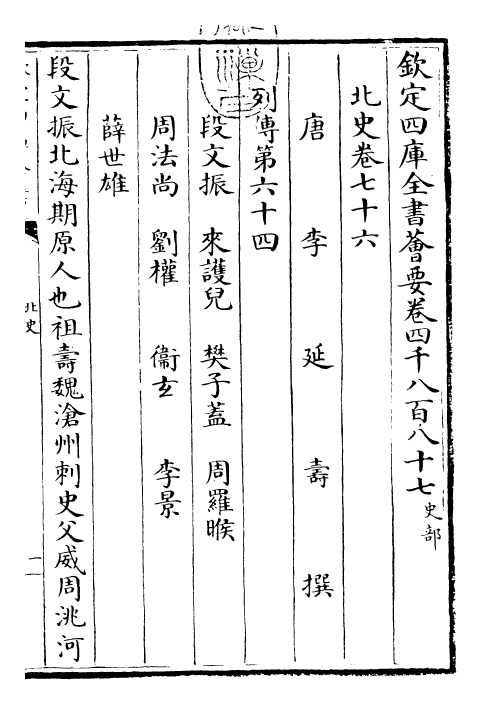 欽定四庫全書薈要卷四千八百八十七史部
北史卷七十六
唐李延壽撰
列傳第六十四
段文振 來護兒 樊子蓋 周羅睺
周法尚 劉權 衞玄 李景
薛世雄
段文振北海期原人也祖壽魏滄州刺史父威周洮河
北史
一